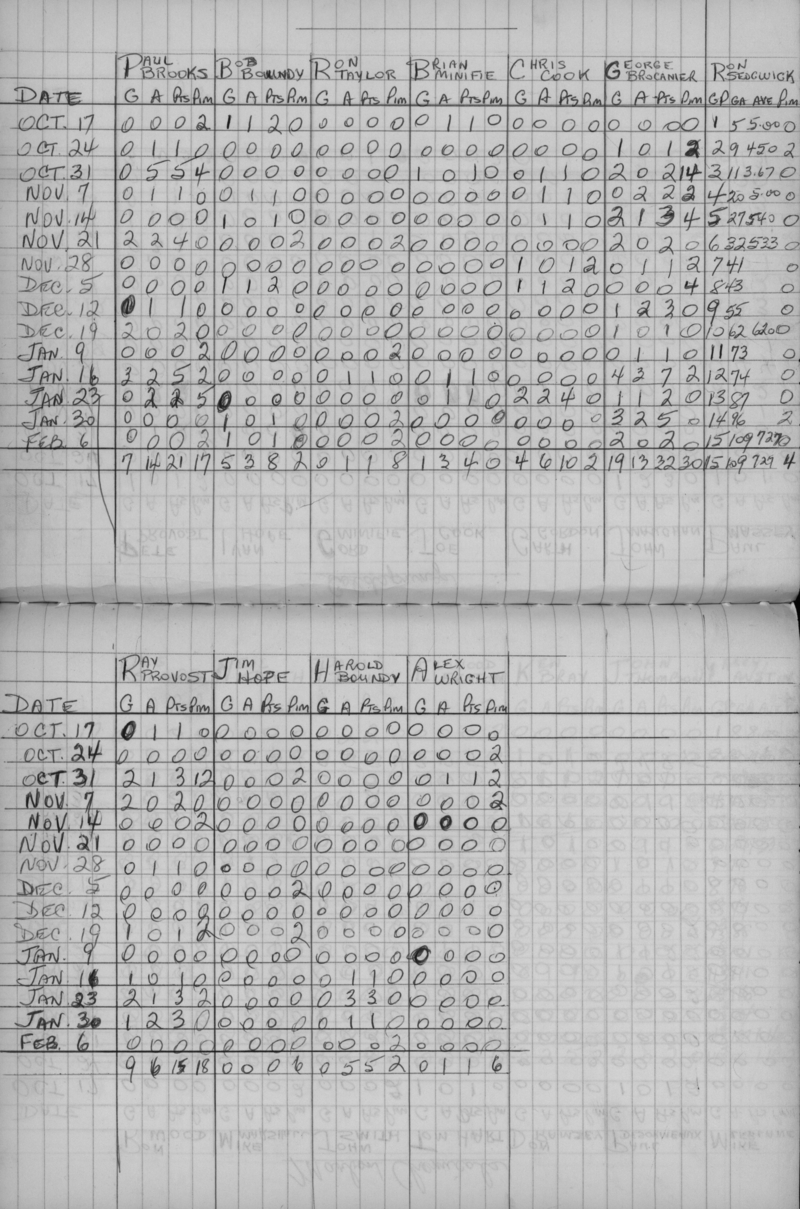 PAUL BROOKS BOB BOUNDY RON TAYLOR BRIAN MINIFIE CHRIS COOK GEORGE BROCANIER RON SEDGWICK
DATE G A Pts Pim G A Pts Pim G A Pts Pim G A Pts Pim G A Pts Pim G A Pts Pim GP GA AVE Pim
OCT. 17 0 0 0 2 1 1 2 0 0 0 0 0 0 1 1 0 0 0 0 0 0 0 0 0 1 5 5.00 0
OCT. 24 0 1 1 0 0 0 0 0 0 0 0 0 0 0 0 0 0 0 0 0 1 0 1 2 2 9 4.50 2
OCT. 31 0 5 5 4 0 0 0 0 0 0 0 0 1 0 1 0 0 1 1 0 2 0 2 14 3 11 3.67 0
NOV. 7 0 1 1 0 0 1 1 0 0 0 0 0 0 0 0 0 0 1 1 0 0 2 2 2 4 20 5.00 0
NOV. 14 0 0 0 0 1 0 1 0 0 0 0 0 0 0 0 0 0 1 1 0 2 1 3 4 5 27 5.40 0
NOV. 21 2 2 4 0 0 0 0 2 0 0 0 2 0 0 0 0 0 0 0 0 2 0 2 0 6 32 5.33 0
NOV. 28 0 0 0 0 0 0 0 0 0 0 0 0 0 0 0 0 1 0 1 2 0 1 1 2 7 41 0
DEC. 5 0 0 0 0 1 1 2 0 0 0 0 0 0 0 0 0 1 1 2 0 0 0 0 4 8 43 0
DEC. 12 0 1 1 0 0 0 0 0 0 0 0 0 0 0 0 0 0 0 0 0 1 2 3 0 9 55 0
DEC. 19 2 0 2 0 0 0 0 0 0 0 0 0 0 0 0 0 0 0 0 0 1 0 1 0 10 62 6.20 0
JAN. 9 0 0 0 2 0 0 0 0 0 0 0 2 0 0 0 0 0 0 0 0 0 1 1 0 11 73 0
JAN. 16 3 2 5 2 0 0 0 0 0 1 1 0 0 1 1 0 0 0 0 0 4 3 7 2 12 74 0
JAN. 23 0 2 2 5 0 0 0 0 0 0 0 0 0 1 1 0 2 2 4 0 1 1 2 0 13 87 0
JAN. 30 0 0 0 0 1 0 1 0 0 0 0 2 0 0 0 0 0 0 0 0 3 2 5 0 14 96 2
FEB. 6 0 0 0 2 1 0 1 0 0 0 0 2 0 0 0 0 0 0 0 0 2 0 2 0 15 109 7.27 0
7 14 21 17 5 3 8 2 0 1 1 8 1 3 4 0 4 6 10 2 19 13 32 30 15 109 7.27 4
RAY PROVOST JIM HOPE HAROLD BOUNDY ALEX WRIGHT
DATE G A Pts Pim G A Pts Pim G A Pts Pim G A Pts Pim
OCT. 17 0 1 1 0 0 0 0 0 0 0 0 0 0 0 0 0
OCT. 24 0 0 0 0 0 0 0 0 0 0 0 0 0 0 0 2
OCT. 31 2 1 3 12 0 0 0 2 0 0 0 0 0 1 1 2
NOV. 7 2 0 2 0 0 0 0 0 0 0 0 0 0 0 0 2
NOV. 14 0 0 0 2 0 0 0 0 0 0 0 0 0 0 0 0
NOV. 21 0 0 0 0 0 0 0 0 0 0 0 0 0 0 0 0
NOV. 28 0 1 1 0 0 0 0 0 0 0 0 0 0 0 0 0
DEC. 5 0 0 0 0 0 0 0 2 0 0 0 0 0 0 0 0
DEC. 12 0 0 0 0 0 0 0 0 0 0 0 0 0 0 0 0
DEC. 19 1 0 1 2 0 0 0 2 0 0 0 0 0 0 0 0
JAN. 9 0 0 0 0 0 0 0 0 0 0 0 0 0 0 0 0
JAN. 16 1 0 1 0 0 0 0 0 0 1 1 0 0 0 0 0
JAN. 23 2 1 3 2 0 0 0 0 0 3 3 0 0 0 0 0
JAN. 30 1 2 3 0 0 0 0 0 0 1 1 0 0 0 0 0
FEB. 6 0 0 0 0 0 0 0 0 0 0 0 2 0 0 0 0
9 6 15 18 0 0 0 6 0 5 5 2 0 1 1 6